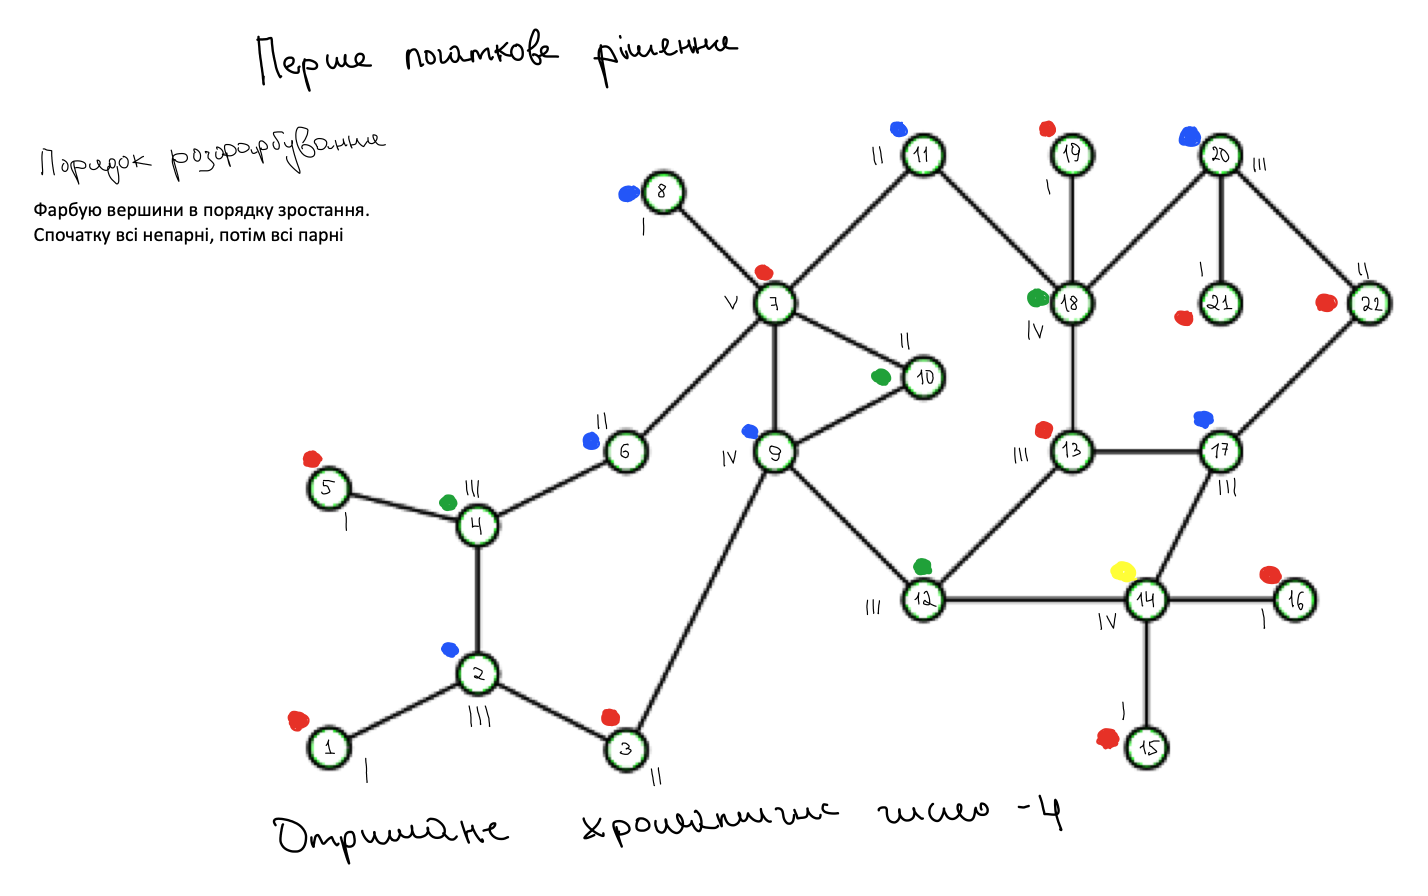 Перше початкове рішення
Порядок розфарбування
Фарбую вершини в порядку зростання.
Спочатку всі непарні, потім всі парні
11
II
19
I
20
III
8
I
7
V
18
IV
I
21
II
22
II
10
II
6
9
IV
13
III
17
III
5
I
III
4
12
III
14
IV
16
I
2
III
1
I
3
II
I
15
Отримане хроматичне число - 4